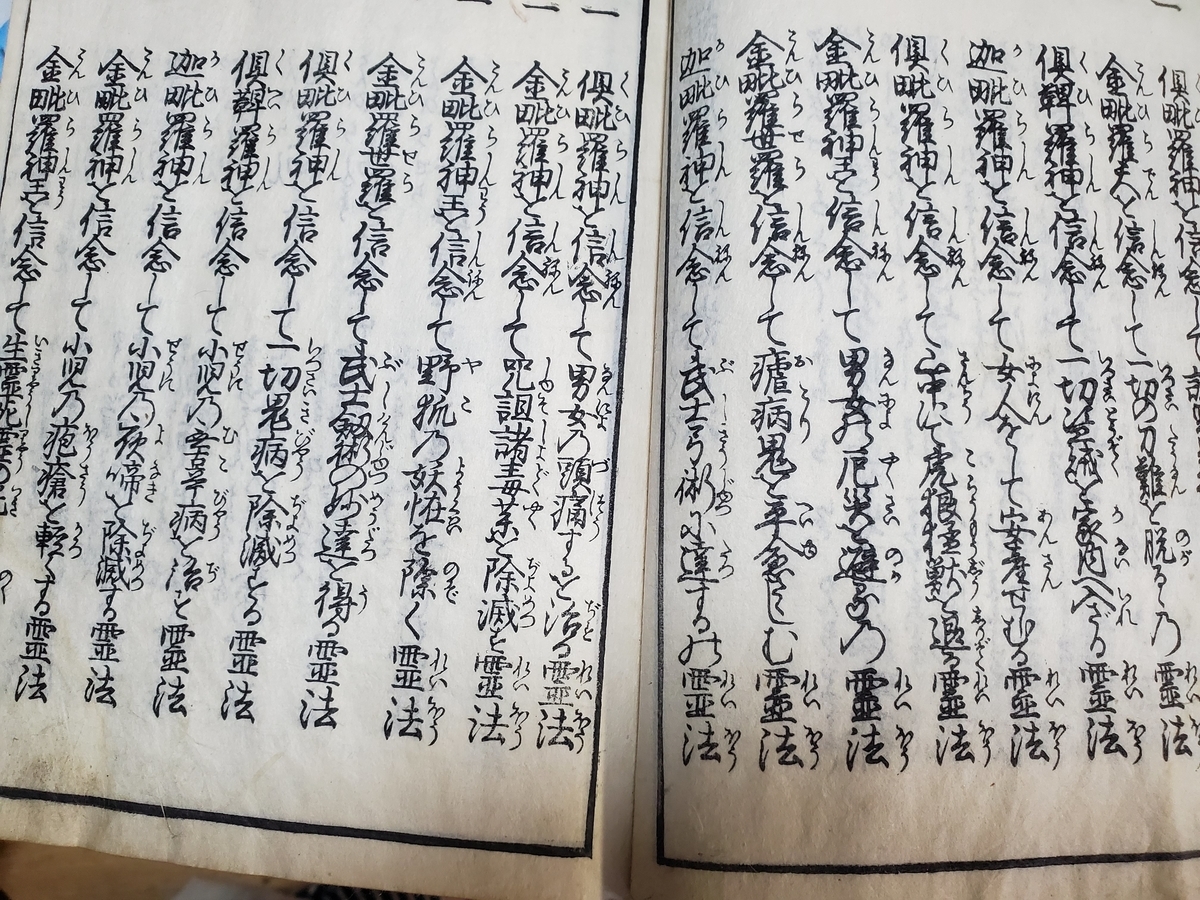 俱毗羅神を信念
金毗羅天を信念して一切の刀難を脱るゝ乃霊法
俱鞞羅神を信念して一切盗賊を家内へ入ざる霊法
迦毗羅神を信念して女人をして安産せしむる霊法
俱毗羅神を信念して山中にて虎狼狂獣を退る霊法
金毗羅神王を信念して男女の厄災を避るの乃霊法
金毗羅世羅を信念して瘧病鬼を平愈せしむ霊法
迦毗羅神を信念して武士弓術に達するの霊法
一
俱毗羅神を信念して男女乃頭痛するを治る霊法
一
金毗羅神を信念して咒詛諸毒薬を除滅を霊法
一
金毗羅神王を信念して野狐乃妖怪を除く霊法
金毗羅世羅を信念して武士劔術の妙達を得る霊法
俱毗羅神を信念して一切鬼病を除滅する霊法
俱鞞羅神を信念して小児乃無辜病を治を霊法
迦毗羅神を信念して小児乃夜啼を除滅する霊法
金毗羅神を信念して小児乃疱瘡を軽くする霊法
金毗羅神王を信念して生霊死霊の